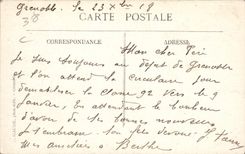 Grenoble. Le 23 Xbre 18
CARTE POSTALE
CORRESPONDANCE
ADRESSE
Mon cher Père
Je suis toujours au dépôt de Grenoble
et l'on attend la circulaire pour
démobiliser la classe 92 vers le 9
Janvier. En attendant le bonheur
d'avoir de tes bonnes nouvelles
Je t'embrasse. Ton fils dévoué
Mes amitiés à Berthe